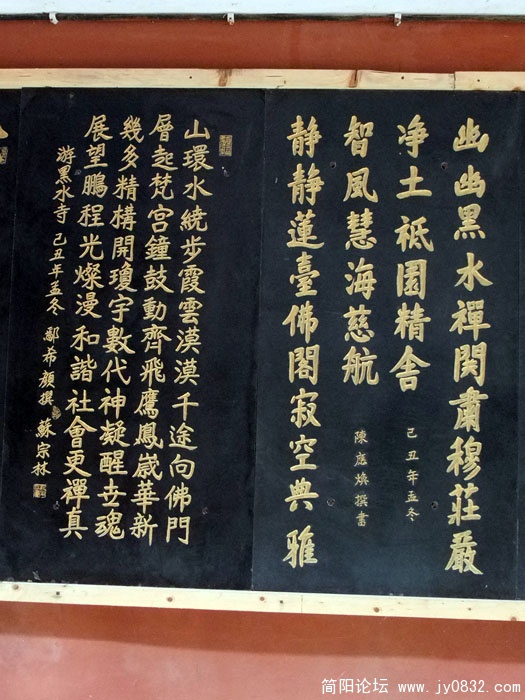 幽幽黑水禪関肅穆莊嚴
净土祇園精舍
己丑年孟冬
智風慧海慈航
陳應煥撰書
静静蓮臺佛閣寂空典雅
山環水繞步霞雲漠漠千途向佛門
層起梵宫鐘鼓動齊飛鷹鳳歲華新
幾多精構開瓊宇數代神凝醒世魂
展望鵬程光燦漫和諧社會更禪真
游黑水寺 己丑年孟冬 鄢希顏撰 蘇宗林
简阳论坛 www.jy0832.com